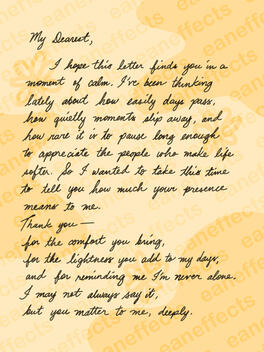 My Dearest,
I hope this letter finds you in a
moment of calm. I've been thinking
lately about how easily days pass,
how quietly moments slip away, and
how rare it is to pause long enough
to appreciate the people who make life
softer. So I wanted to take this time
to tell you how much your presence
means to me.
Thank you—
for the comfort you bring,
for the lightness you add to my days,
and for reminding me I'm never alone.
I may not always say it,
but you matter to me, deeply.